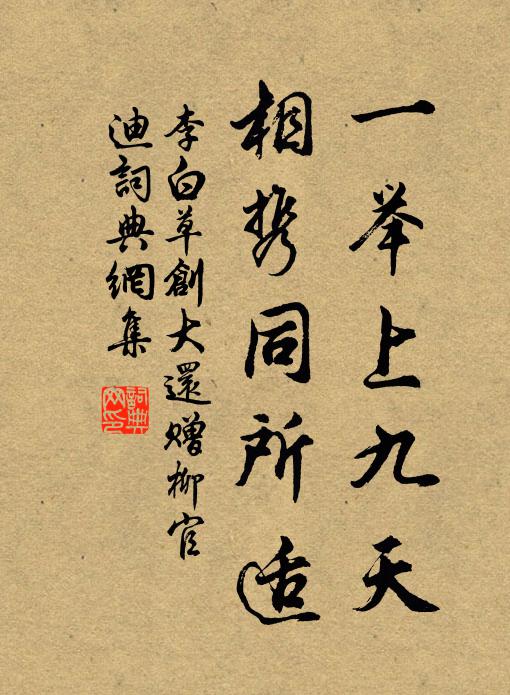 一举上九天
相携同所适
李白草創大還贈柳官
迪詞典網集
詞典
网印